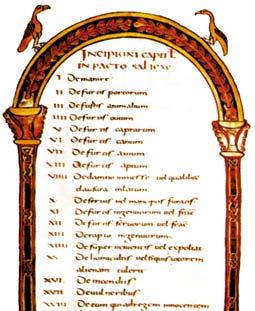 INCIPIUNT CAPITL
IN PACTO SALICAE
I De manire
II De furtis porcorum
III De furtis animalium
IIII De furtis ouium
V De furtis caprarum
VI De furtis canum
VII De furtis auium
VIII De furtis apium
VIIII De damno in messe vel qualibet
clausura inlatum
X De seruis vel mancipiis furatis
XI De furtis ingenuorum vel
XII De furtis seruorum vel
XIII De rapto ingenuorum
XIIII De super venientis vel expoliat
XV De homicidiis vel si quis uxorem
alienam tulerit
XVI De incendiis
XVII De vulneribus
XVIII De eum qui ad regem innocentem